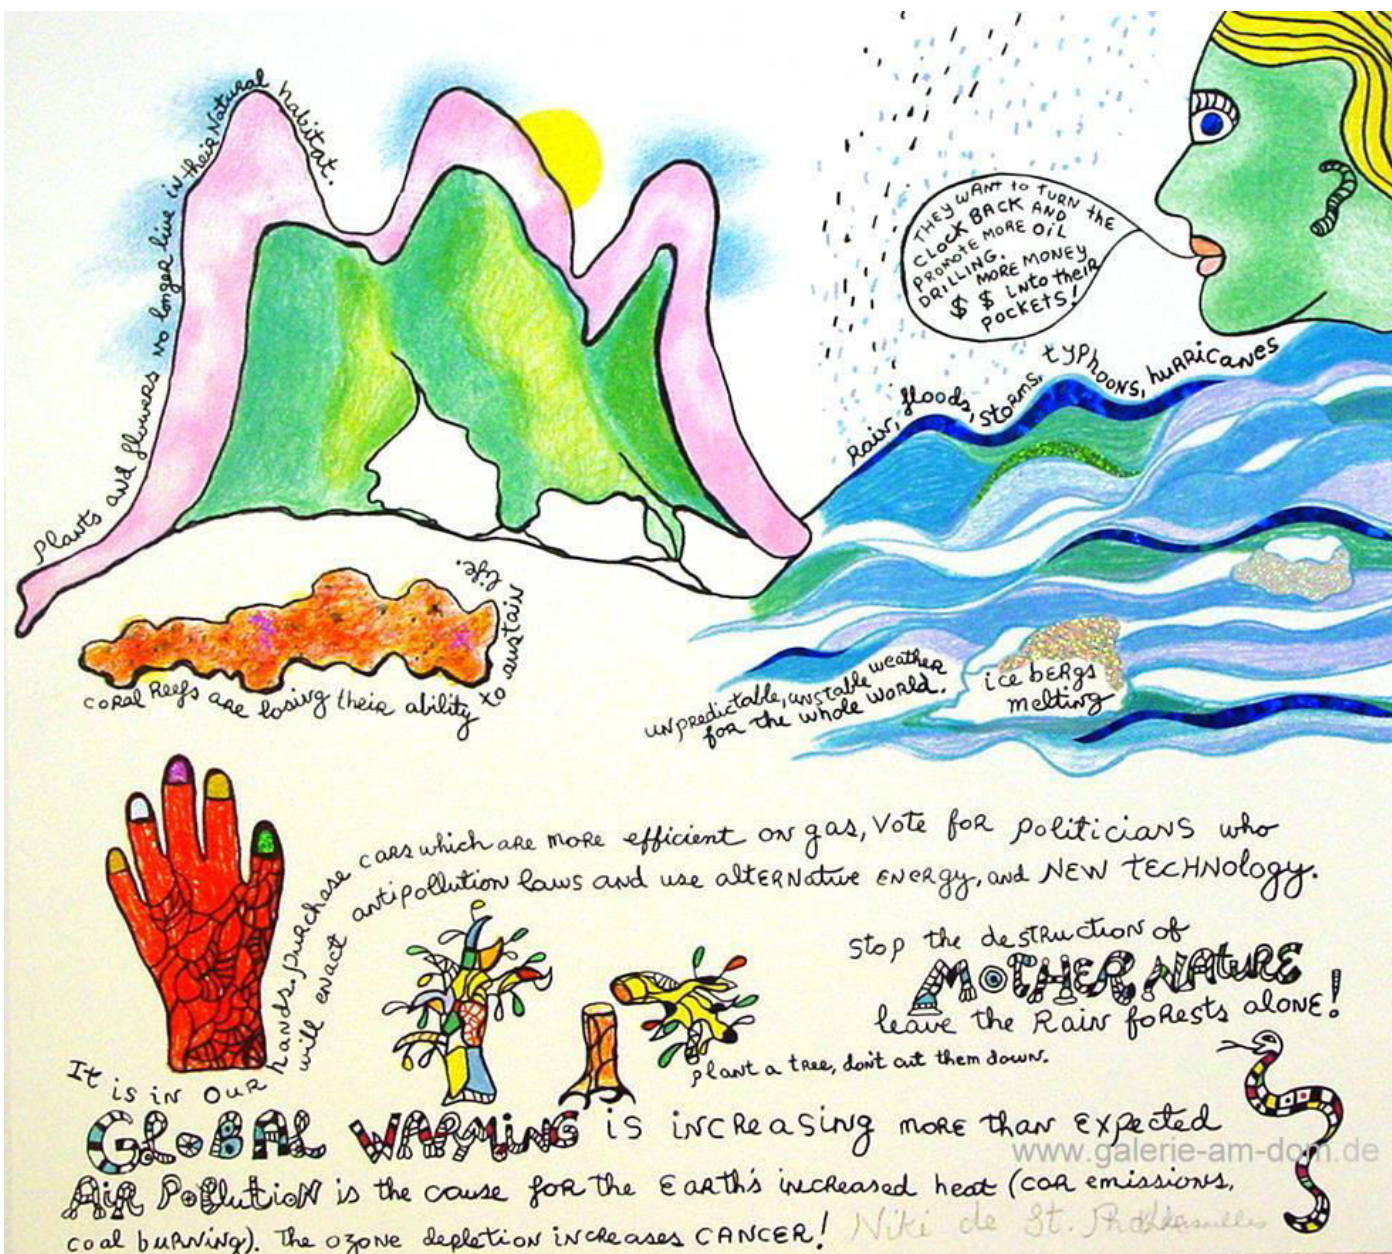 Plants and flowers no longer live in their Natural habitat.
THEY WANT to TURN the
CLOCK BACK AND
PROMOTE MORE OIL
DRILLING.
MORE MONEY
$ $ into their
POCKETS!
Rain, floods, storms, typhoons, hurricanes
coral Reefs are losing their ability to sustain life.
unpredictable, unstable weather
for the whole world.
ice bergs
melting
It is in our hands, purchase cars which are more efficient on gas, Vote for politicians who
will enact antipollution laws and use alternative energy, and NEW TECHNOLOGY.
Stop the destruction of
MOTHER NATURE
leave the Rain forests alone!
plant a tree, don't cut them down.
GLOBAL WARMING is increasing more than expected
www.galerie-am-dom.de
Air Pollution is the cause for the Earth's increased heat (car emissions,
coal burning). The ozone depletion increases CANCER!
Niki de St. Phalle